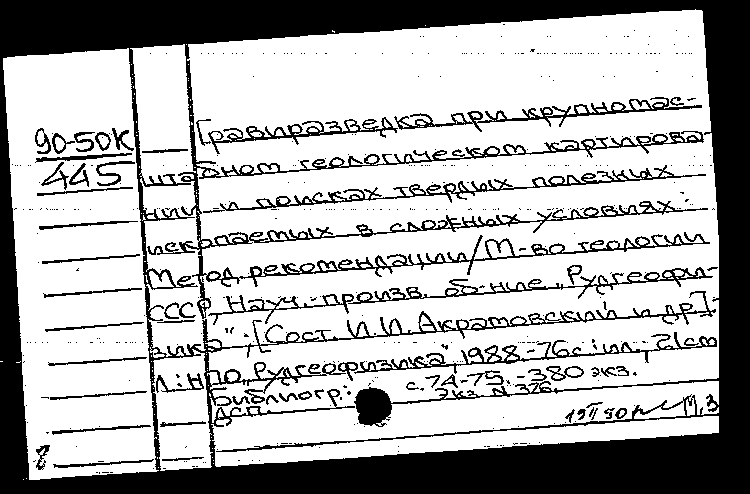 90-50К
445
Гравиразведка при крупномас-
штабном геологическом картирова-
нии и поисках твердых полезных
ископаемых в сложных условиях:
Метод. рекомендации/М-во геологии
СССР, Науч.-произв. об-ние „Рудгеофи-
зика"; [Сост. И.И. Акрамовский и др.]-
Л.: НПО „Рудгеофизика", 1988.-76с.: ил.; 21см
Библиогр.: с.74-75. -380 экз.
ДСП. Экз. N 326.